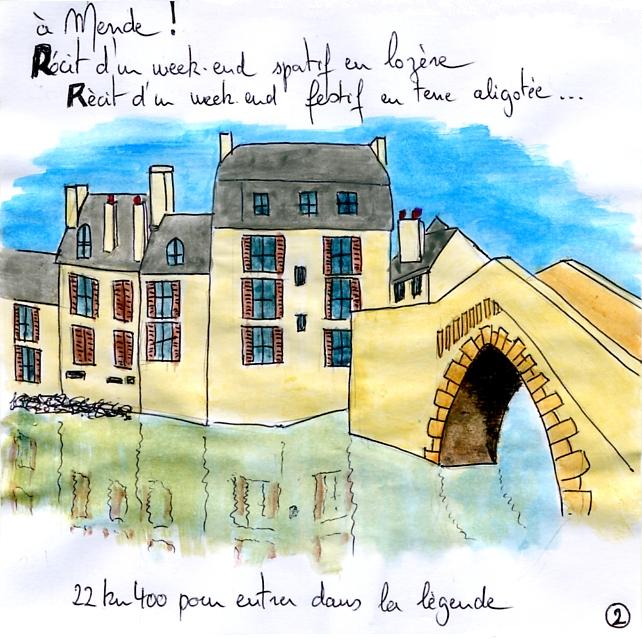 à Mende !
Récit d'un week-end spatif en lozère
Rècit d'un week-end festif en terre aligotée...
22 km 400 pour entrer dans la lègende
2